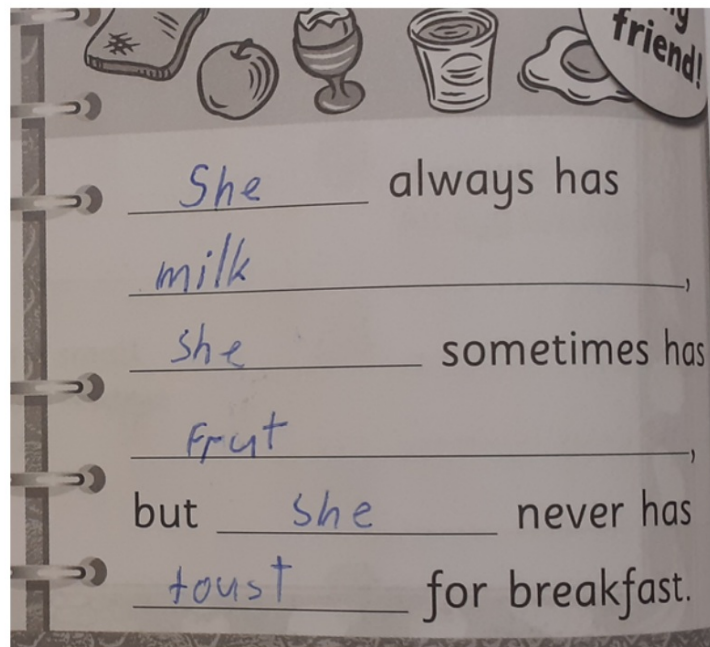 friend!
She always has
milk,
she sometimes has
Frut,
but she never has
toust for breakfast.